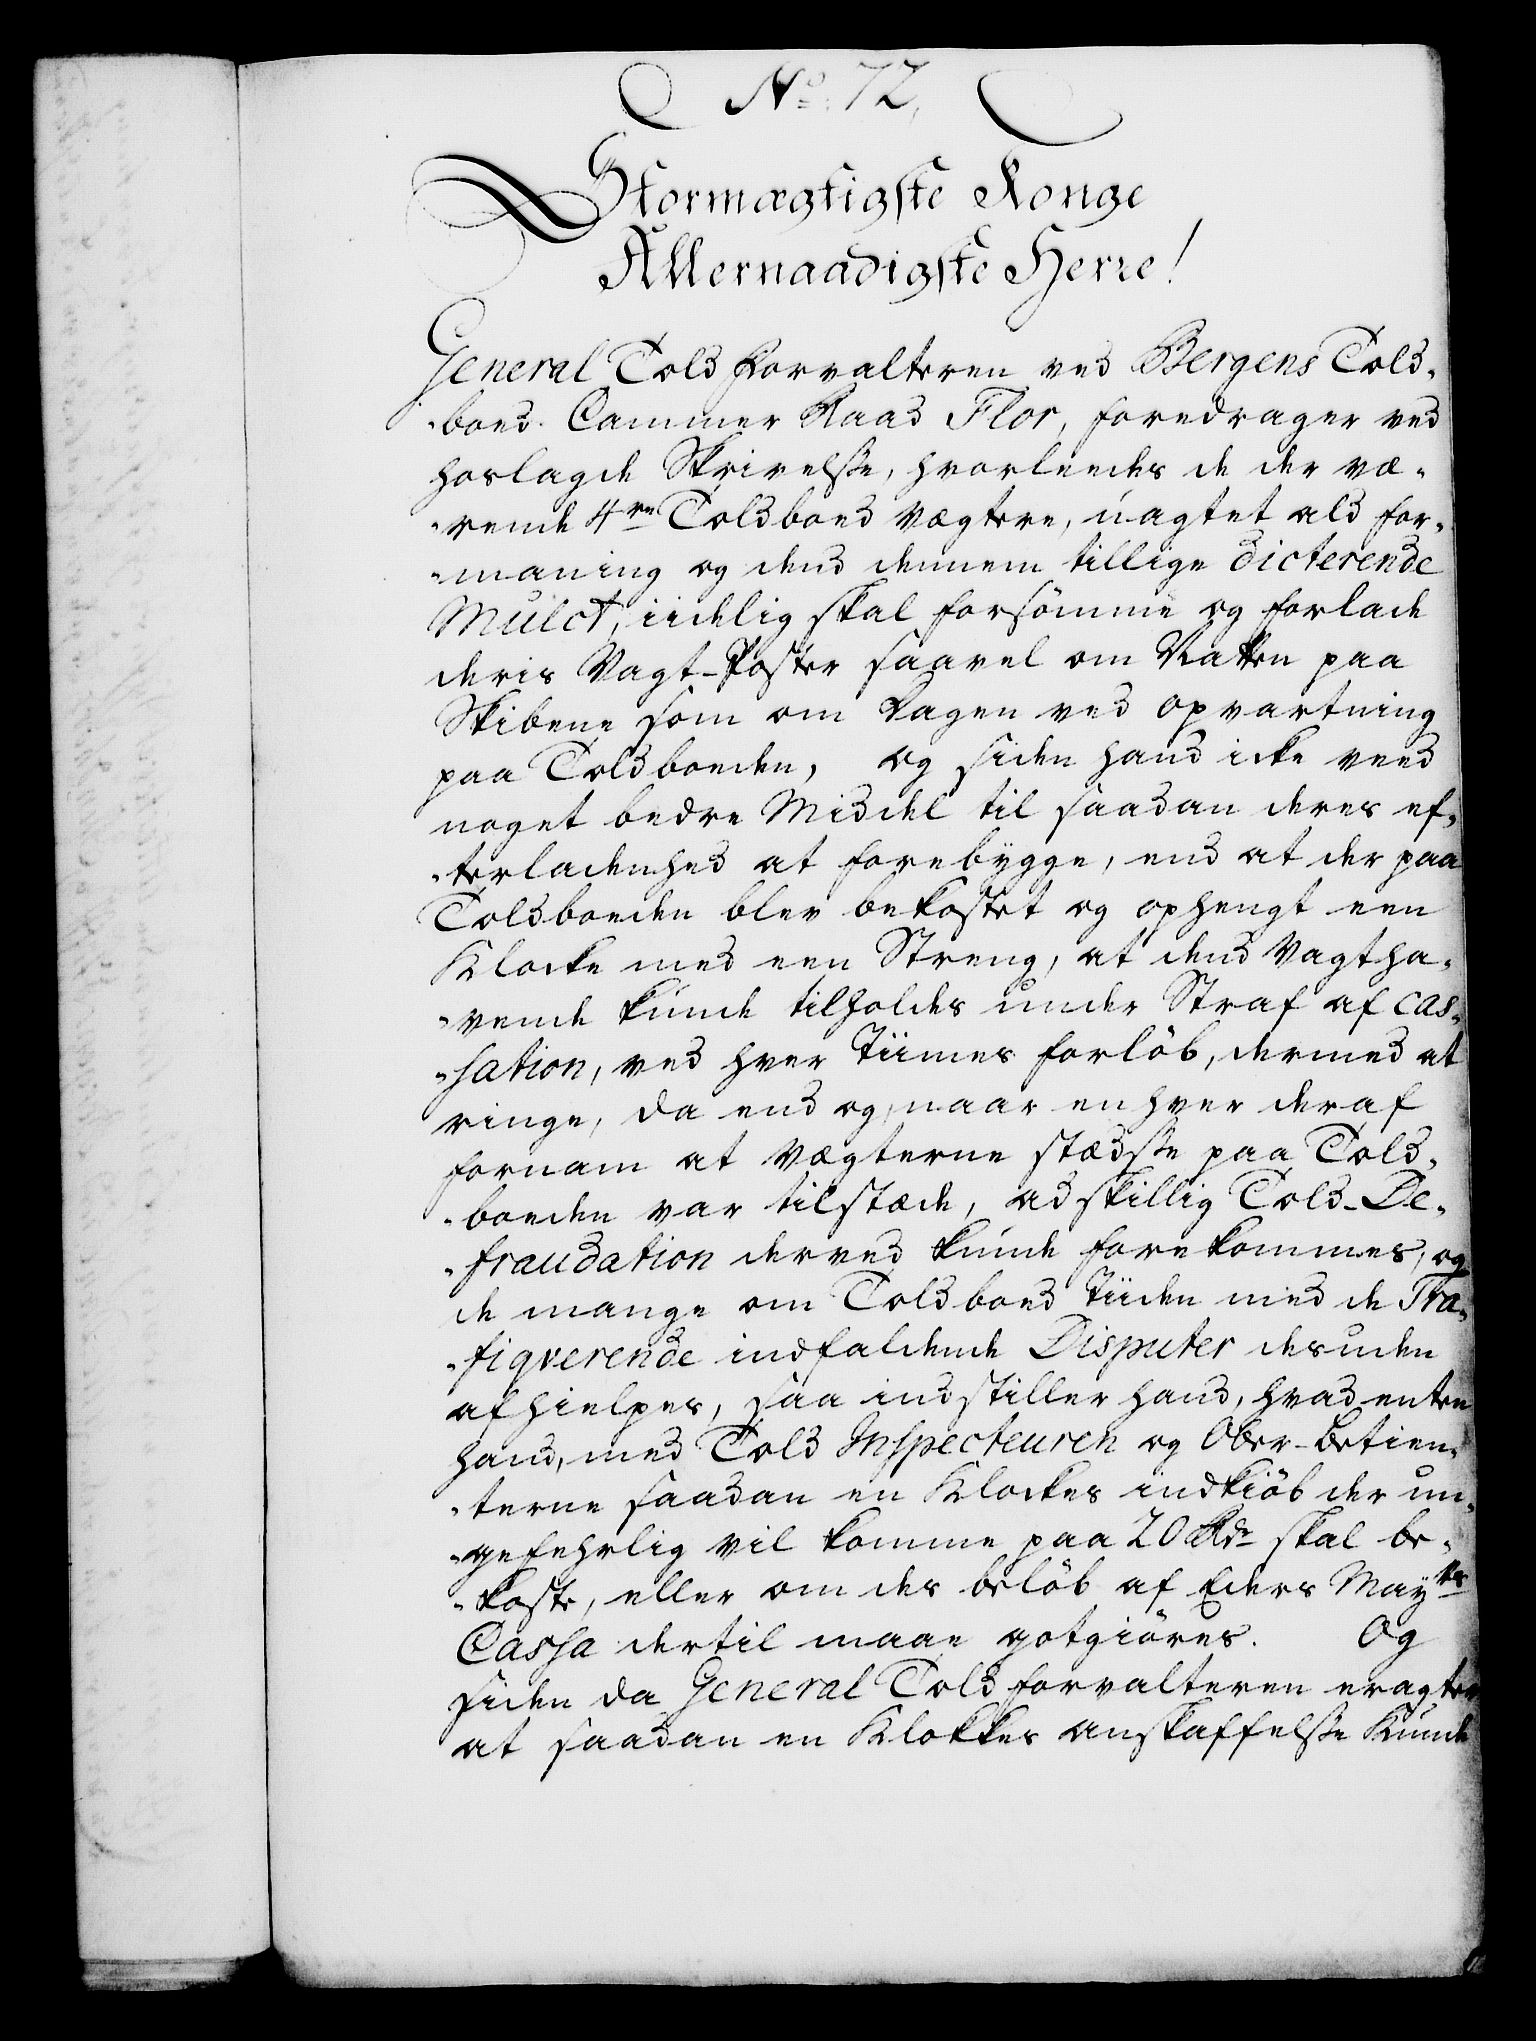 No. 72.
Stormægtigste Konge
Allernaadigste Herre!
General Told Forvalteren ved Bergens Told-
-boed Cammer Raad Flor, foredrager ved
hoslagde Skrivelsse, hvorleedes de der væ-
-rende 4re Toldboed Vægtere, uagtet ald for-
-maning og dend dennem tillige dicterende
Mulct, iidelig skal forsömme og forlade
deris Vagt-Poster saavel om Natten paa
Skibene som om Dagen ved opvartning
paa Toldboeden, og siden hand icke veed
noget bedre Middel til saadan deres ef-
-terladenhed at forebÿgge, end at der paa
Toldboeden blev bekostet og ophengt een
Klocke med een Streng, at dend Vagtha-
-vende kunde tilholdes under Straf af cas-
-sation, ved hver Tiimes forlöb, dermed at
ringe, da end og, naar enhver deraf
fornam at Vægterne stædsse paa Told-
-boeden var tilstæde, adskillig Told-De-
-fraudation derved kunde forekommes, og
de mange om Toldboed Tiiden med de Tra-
-fiqverende indfaldende Disputer desuden
afhielpes, saa indstiller hand, hvad enten
hand, med Told Inspecteuren og Ober-Betien-
-terne saadan en Klockes indkiöb der un-
-gefehrlig vil komme paa 20 Rdr skal be-
-koste, eller om des belöb af Eders Mayts
Cassa dertil maae gotgiöres. Og
siden da General Toldforvalteren eragter
at saadan en Klokkes anskaffelsse Kunde